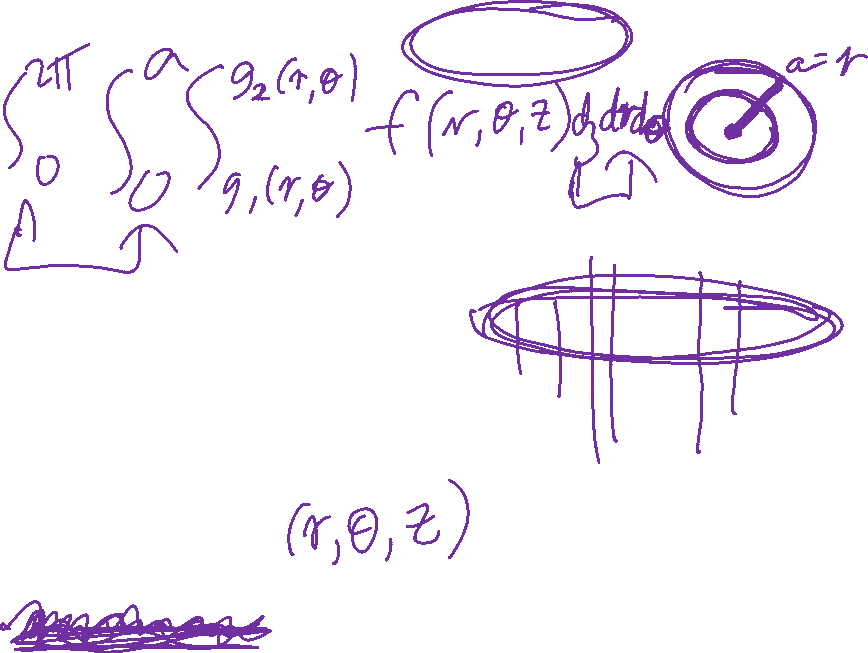 ∫₀^{2π} ∫₀^{a} ∫_{g₁(r,θ)}^{g₂(r,θ)} f(r,θ,z) dz dr dθ
a=r
(r,θ,z)